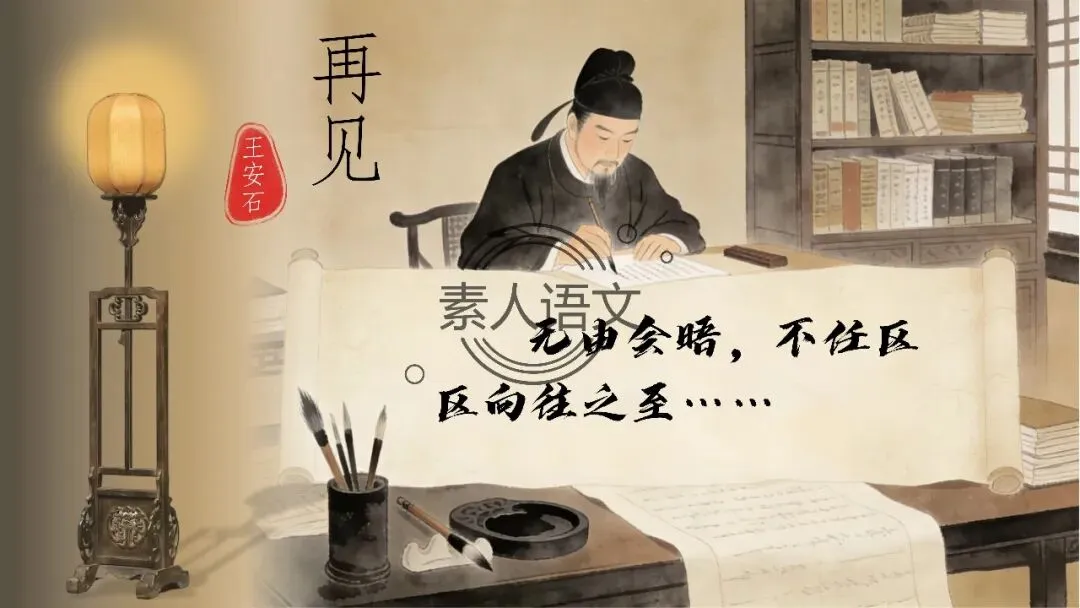 再见
王安石
素人语文
无由会晤，不任区
区向往之至……